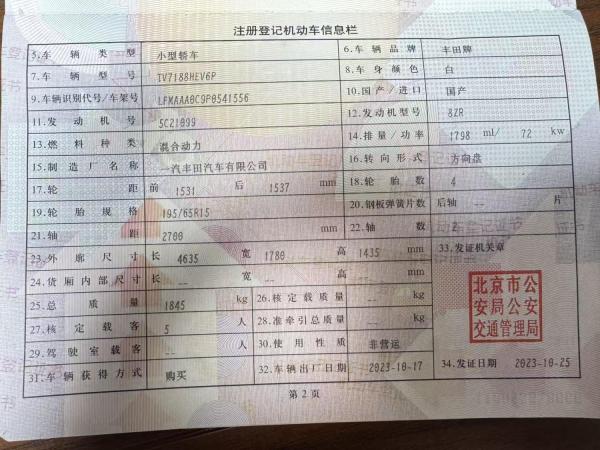 注册登记机动车信息栏
5.车辆类型 小型轿车 6.车辆品牌 丰田牌
7.车辆型号 TV7188HEV6P 8.车身颜色 白
9.车辆识别代号/车架号 LFMAAA0C9P0541556 10.国产/进口 国产
11.发动机号 5C21099 12.发动机型号 8ZR
13.燃料种类 混合动力 14.排量/功率 1798 ml/ 72 kw
15.制造厂名称 一汽丰田汽车有限公司 16.转向形式 方向盘
17.轮距 前 1531 后 1537 mm 18.轮胎数 4
19.轮胎规格 195/65R15 20.钢板弹簧片数 后轴 -- 片
21.轴距 2700 mm 22.轴数 2
23.外廓尺寸 长 4635 宽 1780 高 1435 mm 33.发证机关章
24.货厢内部尺寸 长 -- 宽 -- 高 -- mm
25.总质量 1845 kg 26.核定载质量 -- kg
27.核定载客 5 人 28.准牵引总质量 -- kg
29.驾驶室载客 -- 人 30.使用性质 非营运
31.车辆获得方式 购买 32.车辆出厂日期 2023-10-17 34.发证日期 2023-10-25
北京市公
安局公安
交通管理局
第2页